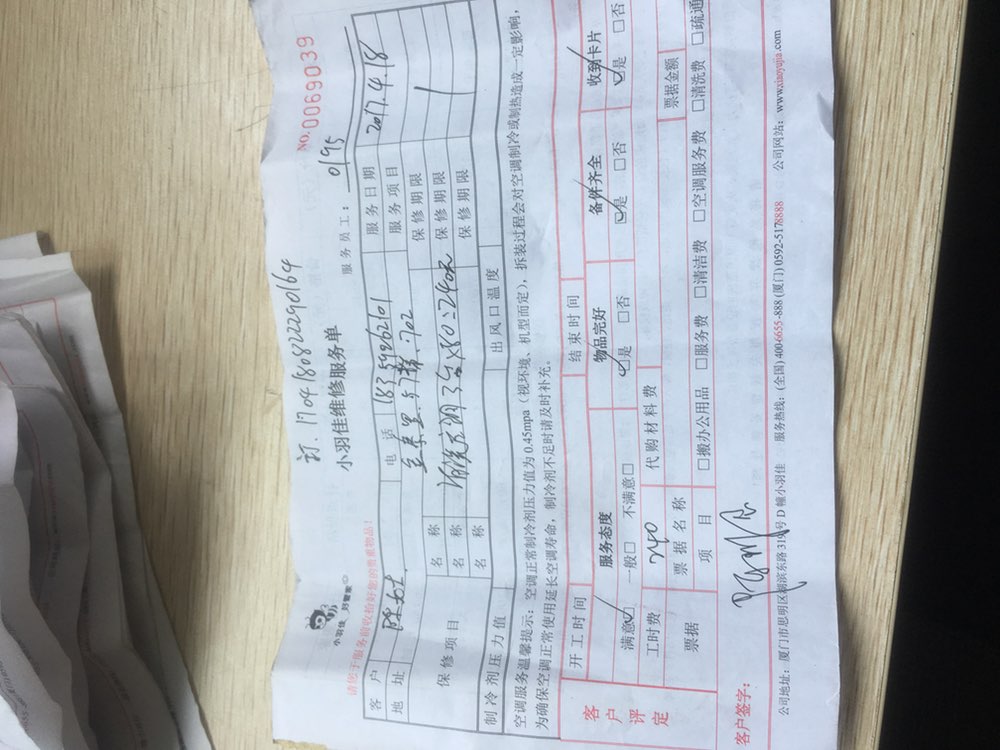 订.1704180822290164
NO.0069039
小羽佳 好管家
小羽佳维修服务单
服务员工： 0195
请您于服务前收拾好您的贵重物品！
客户 陈女士 电话 服务日期 2017.4.18
地址 服务项目
保修项目 名称 保修期限
名称 清洗空调3台×80=240元 保修期限
名称 保修期限
制冷剂压力值 出风口温度
空调服务温馨提示：空调正常制冷剂压力值为 0.45mpa（视环境、机型而定），拆装过程会对空调制冷或制热造成一定影响，
为确保空调正常使用延长空调寿命，制冷剂不足时请及时补充。
客户评定
开工时间 结束时间
服务态度 物品完好 备件齐全 收到卡片
满意☑ 一般□ 不满意□ ☑是 □否 ☑是 □否 ☑是 □否
工时费 240 代购材料费
票据 票据名称 票据金额
项目 □搬办公用品 □服务费 □清洁费 □空调服务费 □清洗费 □疏通
客户签字：
公司地址：厦门市思明区湖滨东路319号D幢小羽佳 服务热线：(全国) 400-6655-888 (厦门) 0592-5178888 公司网站：www.xiaoyujia.com